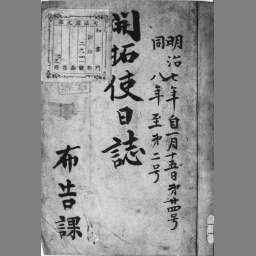 明治七年自一月十五日第廿四号
同八年至第二号
開拓使日誌
布告課